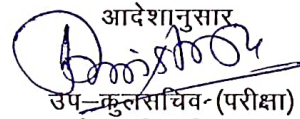 आदेशानुसार
उप–कुलसचिव-(परीक्षा)